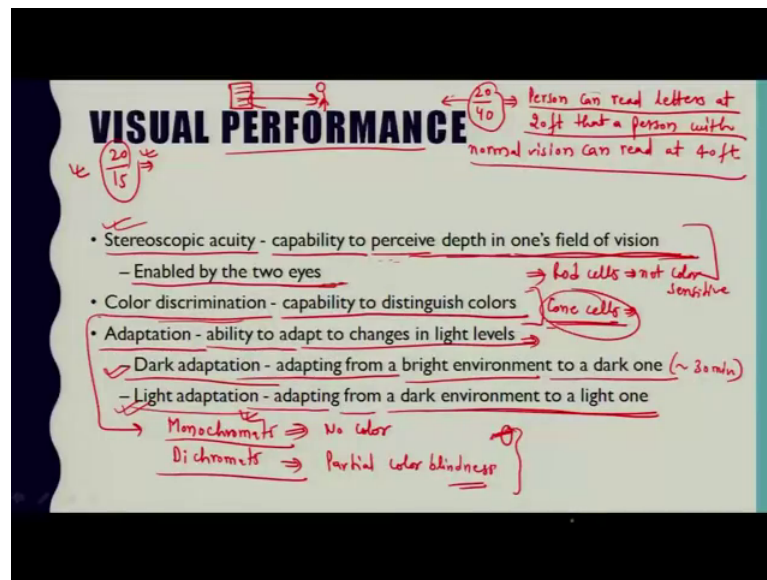 20/40 ⇒ Person can read letters at
20ft that a person with
normal vision can read at 40ft
VISUAL PERFORMANCE
20/15 ⇒
• Stereoscopic acuity - capability to perceive depth in one's field of vision
– Enabled by the two eyes
⇒ Rod cells ⇒ not color
sensitive
• Color discrimination - capability to distinguish colors
Cone cells ⇒
• Adaptation - ability to adapt to changes in light levels ⇒
– Dark adaptation - adapting from a bright environment to a dark one (~30min)
– Light adaptation - adapting from a dark environment to a light one
→ Monochromats ⇒ No color
Dichromats ⇒ Partial color blindness